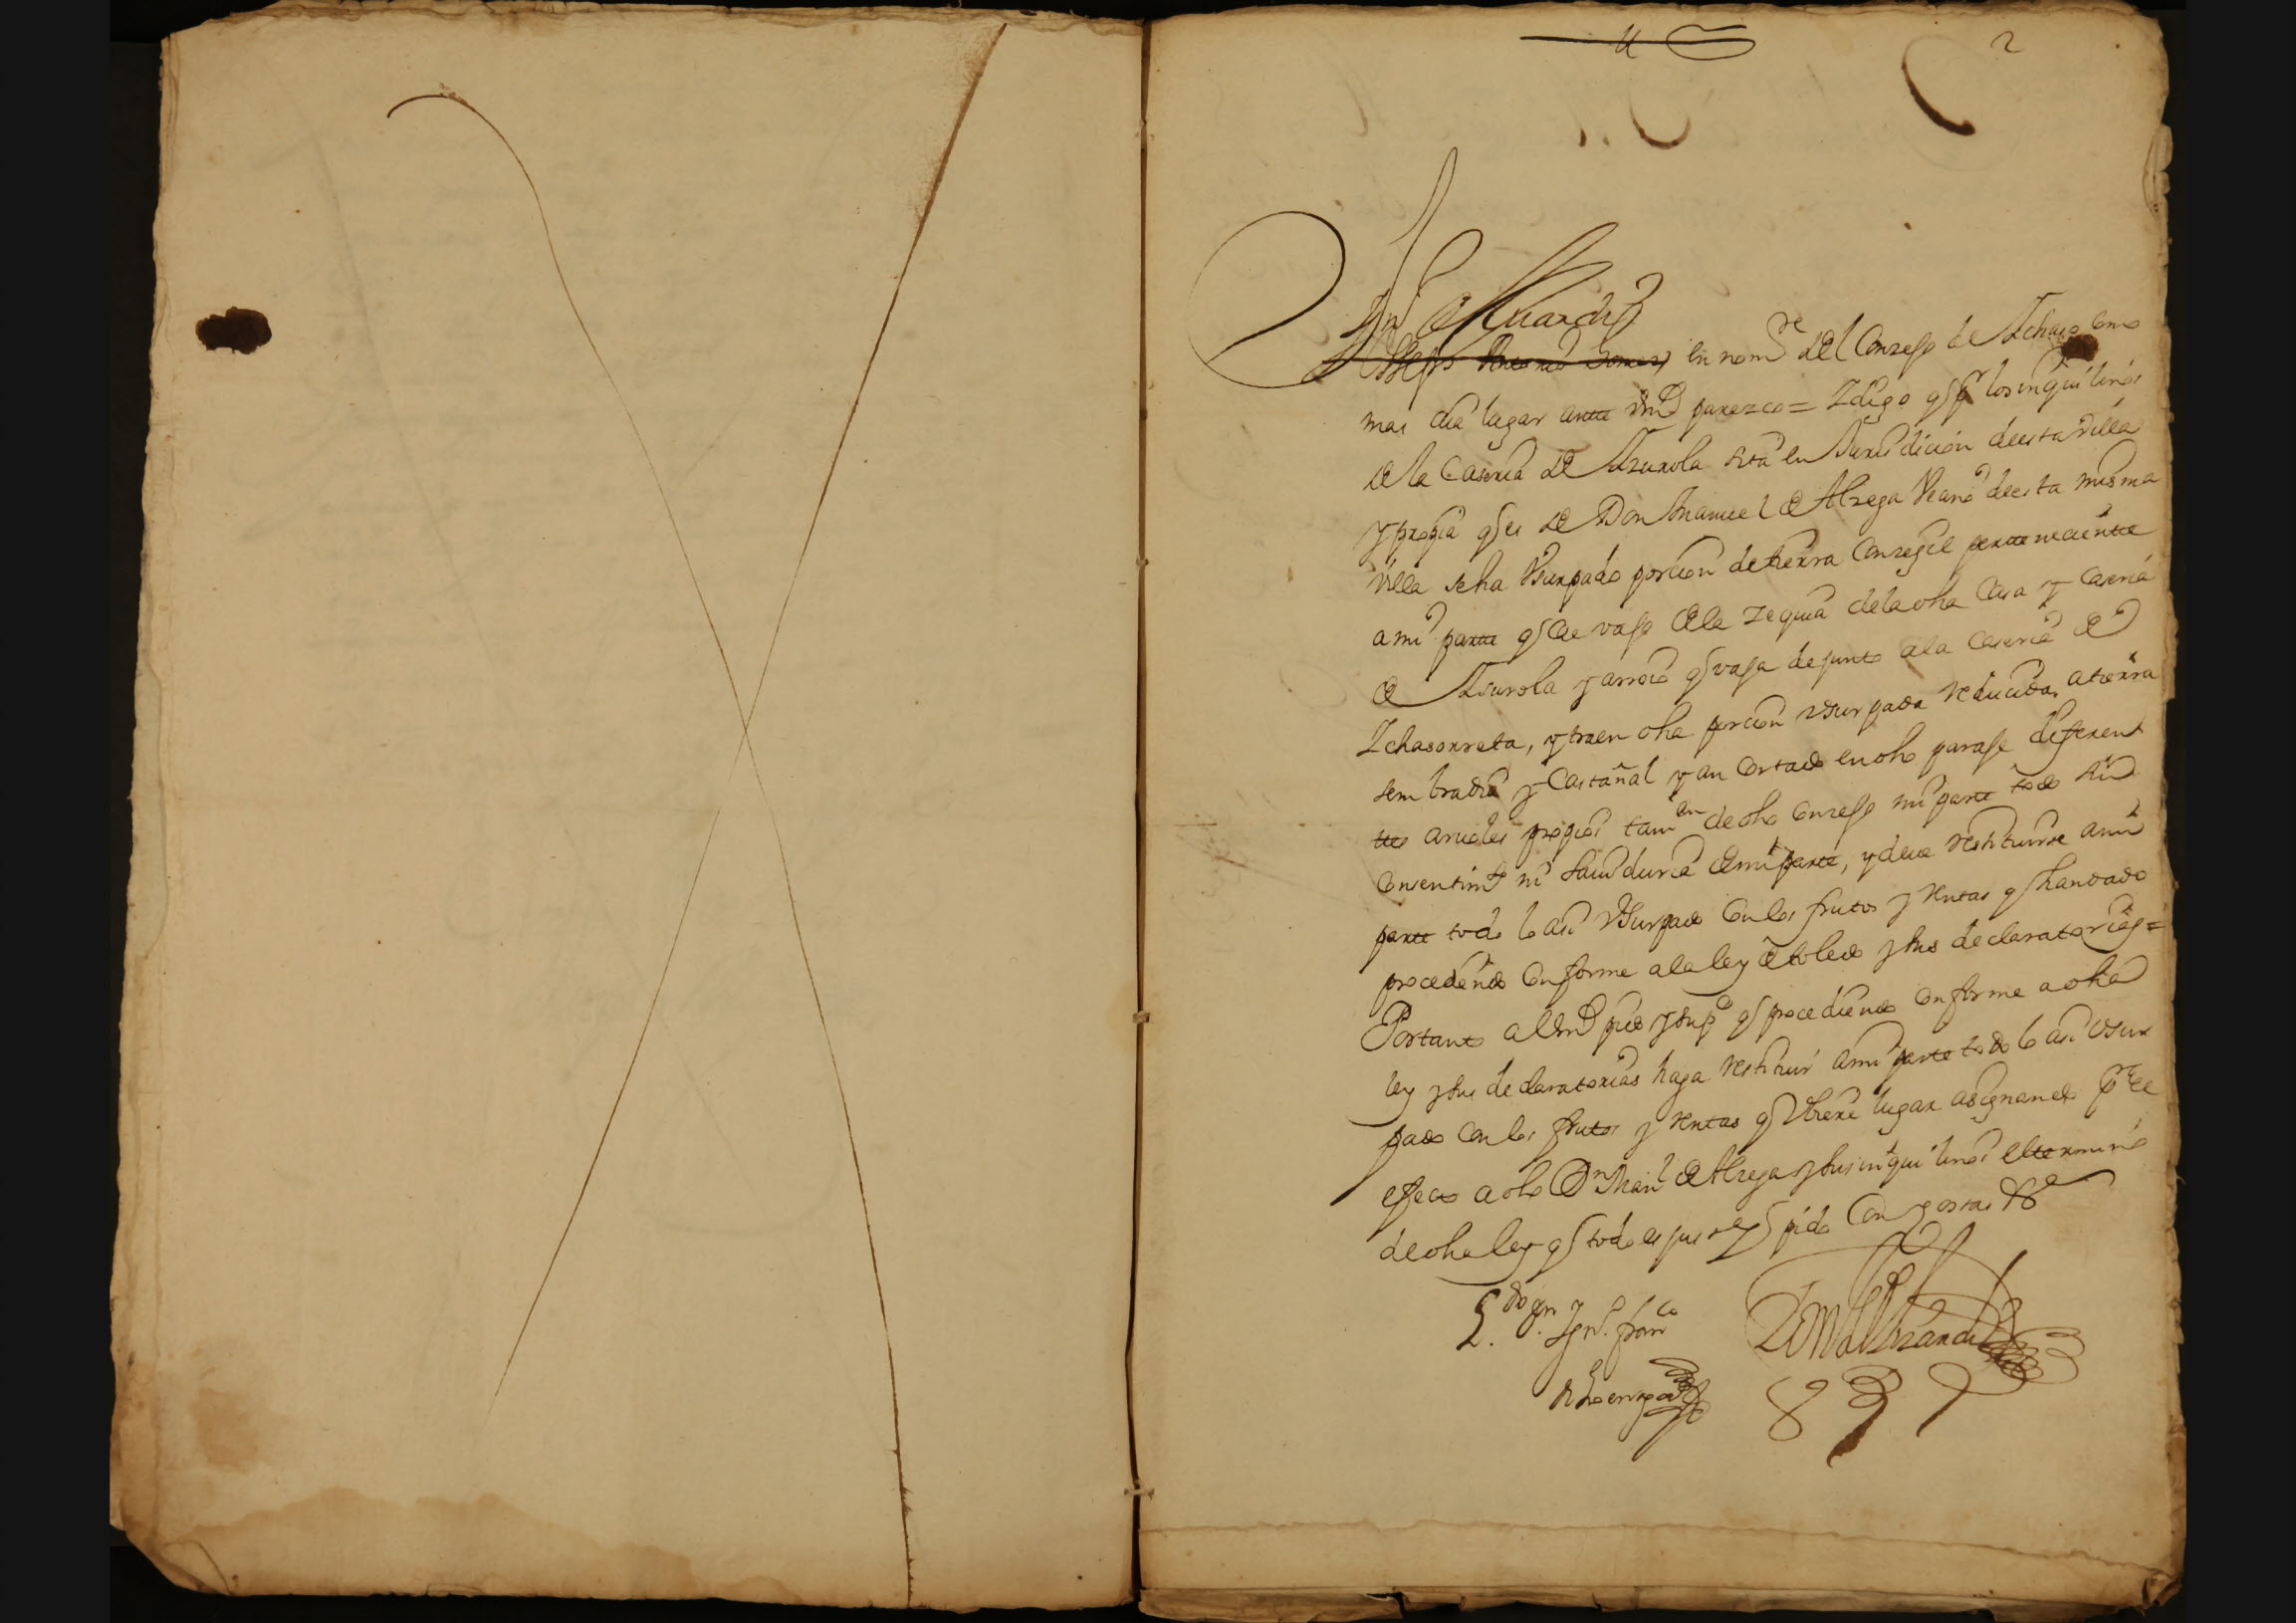 2
en nomre del Conzejo de Ichaso como
mas aia lugar ante vmd parezco = Y digo q por los inquilinos
de la Caseria de Isurola sita en Jurisdicion de esta villa
y propia q es de Don Manuel de Alzega vezino de esta misma
villa se ha Usurpado porcion de tierra Conzegil perteneciente
a mi parte q cae vajo de la zequia de la dha Casa y Caseria
de Isurola y arroio q vaja de junto a la Caseria de
Ichasorreta, y traen dha porcion usurpada reducida a tierra
sembradia y Castañal y an Cortado en dho paraje diferen
tes arvoles propios tamvien de dho Conzejo mi parte todo sin
Consentimto ni saviduria de mi parte, y deve restituirse a mi
parte todo lo asi Usurpado Con los frutos y rentas q han dado
procediendo Conforme a la ley de toledo y sus declaratorias =
Por tanto a Vmd pido y supco q procediendo Conforme a dha
ley y sus declaratorias haga restituir a mi parte todo lo asi Usur
pado Con los frutos y rentas q Ubiere lugar asignando pa el
efecto a dho Dn Manl de Alzega y sus inquilinos el termino
de dha ley q todo es justo q pido Con costas &a
L.do Dn Ign. Franco